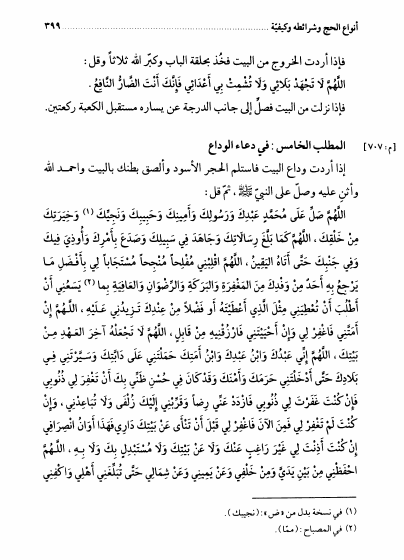 أنواع الحج وشرائطه وكيفيّة ........ ٣٩٩
فإذا أردت الخروج من البيت فخُذ بحلقة الباب وكبّر الله ثلاثاً وقل:
اللَّهُمَّ لَا تَجْهَدْ بَلَائِي وَلَا تُشْمِتْ بِي أَعْدَائِي فَإِنَّكَ أَنْتَ الضَّارُّ النَّافِعُ.
فإذا نزلت من البيت فصلِّ إلى جانب الدرجة عن يساره مستقبل الكعبة ركعتين.
[م: ٧٠٧] المطلب الخامس: في دعاء الوداع
إذا أردت وداع البيت فاستلم الحجر الأسود وألصق بطنك بالبيت واحمد الله
وأثنِ عليه وصلّ على النبيّ ﷺ، ثمّ قل:
اللَّهُمَّ صَلِّ عَلَى مُحَمَّدٍ عَبْدِكَ وَرَسُولِكَ وَأَمِينِكَ وَحَبِيبِكَ وَنَجِيِّكَ (١) وَخِيَرَتِكَ
مِنْ خَلْقِكَ، اللَّهُمَّ كَمَا بَلَّغَ رِسَالَاتِكَ وَجَاهَدَ فِي سَبِيلِكَ وَصَدَعَ بِأَمْرِكَ وَأُوذِيَ فِيكَ
وَفِي جَنْبِكَ حَتَّى أَتَاهُ الْيَقِينُ، اللَّهُمَّ اقْلِبْنِي مُفْلِحاً مُنْجِحاً مُسْتَجَاباً لِي بِأَفْضَلِ مَا
يَرْجِعُ بِهِ أَحَدٌ مِنْ وَفْدِكَ مِنَ الْمَغْفِرَةِ وَالْبَرَكَةِ وَالرِّضْوَانِ وَالْعَافِيَةِ بِمَا (٢) يَسَعُنِي أَنْ
أَطْلُبَ أَنْ تُعْطِيَنِي مِثْلَ الَّذِي أَعْطَيْتَهُ أَوْ فَضْلاً مِنْ عِنْدِكَ تَزِيدُنِي عَلَيْهِ، اللَّهُمَّ إِنْ
أَمَتَّنِي فَاغْفِرْ لِي وَإِنْ أَحْيَيْتَنِي فَارْزُقْنِيهِ مِنْ قَابِلٍ، اللَّهُمَّ لَا تَجْعَلْهُ آخِرَ الْعَهْدِ مِنْ
بَيْتِكَ، اللَّهُمَّ إِنِّي عَبْدُكَ وَابْنُ عَبْدِكَ وَابْنُ أَمَتِكَ حَمَلْتَنِي عَلَى دَابَّتِكَ وَسَيَّرْتَنِي فِي
بِلَادِكَ حَتَّى أَدْخَلْتَنِي حَرَمَكَ وَأَمْنَكَ وَقَدْ كَانَ فِي حُسْنِ ظَنِّي بِكَ أَنْ تَغْفِرَ لِي ذُنُوبِي
فَإِنْ كُنْتَ غَفَرْتَ لِي ذُنُوبِي فَازْدَدْ عَنِّي رِضاً وَقَرِّبْنِي إِلَيْكَ زُلْفَى وَلَا تُبَاعِدْنِي، وَإِنْ
كُنْتَ لَمْ تَغْفِرْ لِي فَمِنَ الْآنَ فَاغْفِرْ لِي قَبْلَ أَنْ تَنْأَى عَنْ بَيْتِكَ دَارِي فَهَذَا أَوَانُ انْصِرَافِي
إِنْ كُنْتَ أَذِنْتَ لِي غَيْرَ رَاغِبٍ عَنْكَ وَلَا عَنْ بَيْتِكَ وَلَا مُسْتَبْدِلٍ بِكَ وَلَا بِهِ، اللَّهُمَّ
احْفَظْنِي مِنْ بَيْنِ يَدَيَّ وَمِنْ خَلْفِي وَعَنْ يَمِينِي وَعَنْ شِمَالِي حَتَّى تُبَلِّغَنِي أَهْلِي وَاكْفِنِي
(١) في نسخة بدل من «ض»: (نجيبك).
(٢) في المصباح: (ممّا).